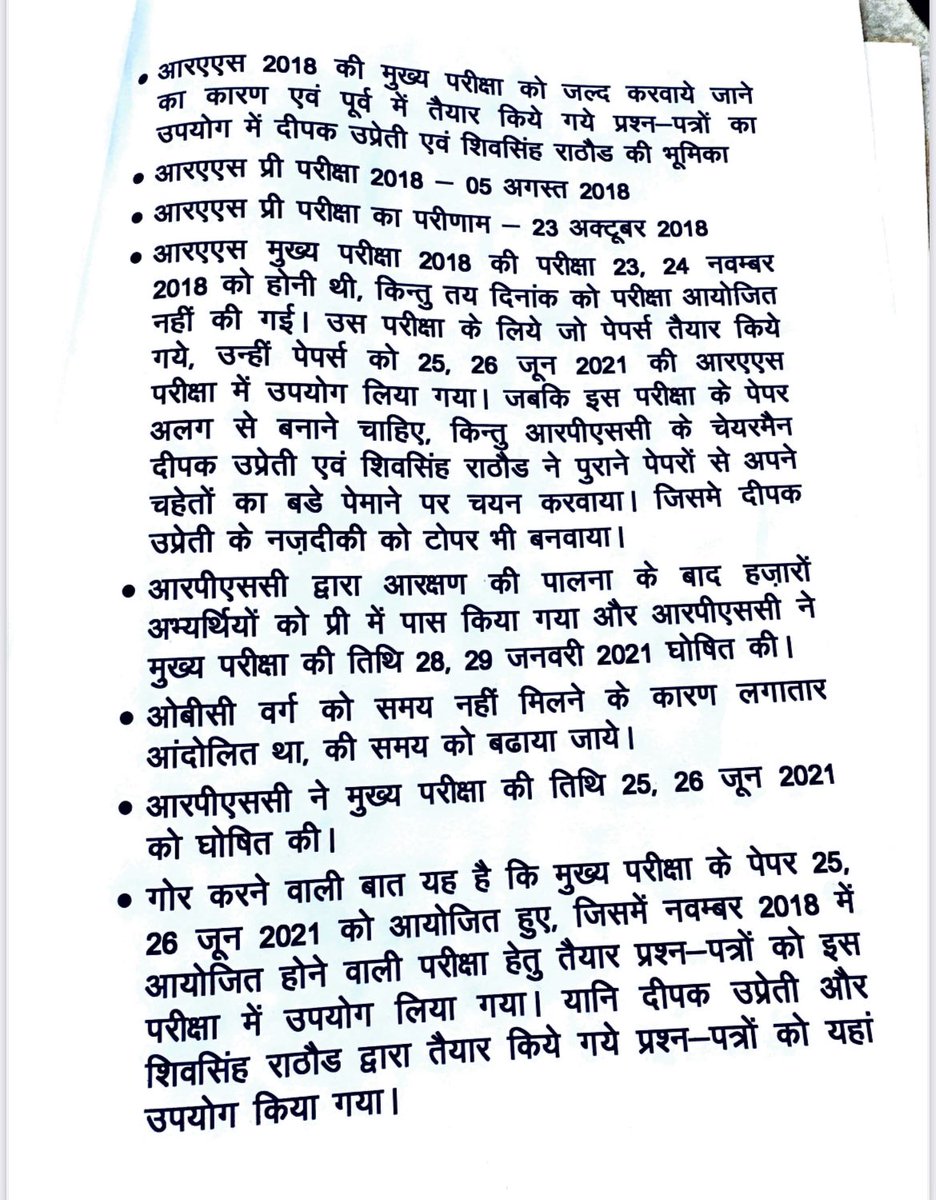 • आरएएस 2018 की मुख्य परीक्षा को जल्द करवाये जाने
का कारण एवं पूर्व में तैयार किये गये प्रश्न–पत्रों का
उपयोग में दीपक उप्रेती एवं शिवसिंह राठौड की भूमिका
• आरएएस प्री परीक्षा 2018 – 05 अगस्त 2018
• आरएएस प्री परीक्षा का परीणाम – 23 अक्टूबर 2018
• आरएएस मुख्य परीक्षा 2018 की परीक्षा 23, 24 नवम्बर
2018 को होनी थी, किन्तु तय दिनांक को परीक्षा आयोजित
नहीं की गई। उस परीक्षा के लिये जो पेपर्स तैयार किये
गये, उन्हीं पेपर्स को 25, 26 जून 2021 की आरएएस
परीक्षा में उपयोग लिया गया। जबकि इस परीक्षा के पेपर
अलग से बनाने चाहिए, किन्तु आरपीएससी के चेयरमैन
दीपक उप्रेती एवं शिवसिंह राठौड ने पुराने पेपरों से अपने
चहेतों का बडे पेमाने पर चयन करवाया। जिसमे दीपक
उप्रेती के नज़दीकी को टोपर भी बनवाया।
• आरपीएससी द्वारा आरक्षण की पालना के बाद हज़ारों
अभ्यर्थियों को प्री में पास किया गया और आरपीएससी ने
मुख्य परीक्षा की तिथि 28, 29 जनवरी 2021 घोषित की।
• ओबीसी वर्ग को समय नहीं मिलने के कारण लगातार
आंदोलित था, की समय को बढाया जाये।
• आरपीएससी ने मुख्य परीक्षा की तिथि 25, 26 जून 2021
को घोषित की।
• गोर करने वाली बात यह है कि मुख्य परीक्षा के पेपर 25,
26 जून 2021 को आयोजित हुए, जिसमें नवम्बर 2018 में
आयोजित होने वाली परीक्षा हेतु तैयार प्रश्न–पत्रों को इस
परीक्षा में उपयोग लिया गया। यानि दीपक उप्रेती और
शिवसिंह राठौड द्वारा तैयार किये गये प्रश्न–पत्रों को यहां
उपयोग किया गया।